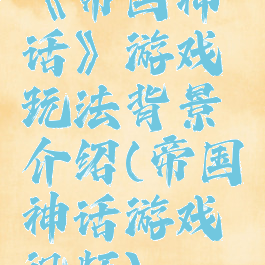 《帝国神
话》游戏
玩法背景
介绍(帝国
神话游戏
视频)